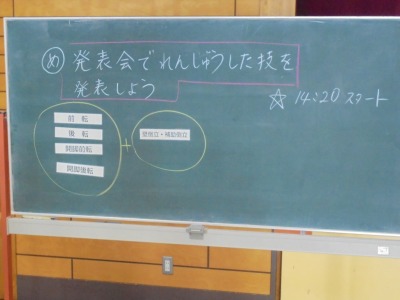 め 発表会でれんしゅうした技を
発表しよう
☆ 14:20 スタート
前転
後転
開脚前転
開脚後転
+
壁倒立・補助倒立